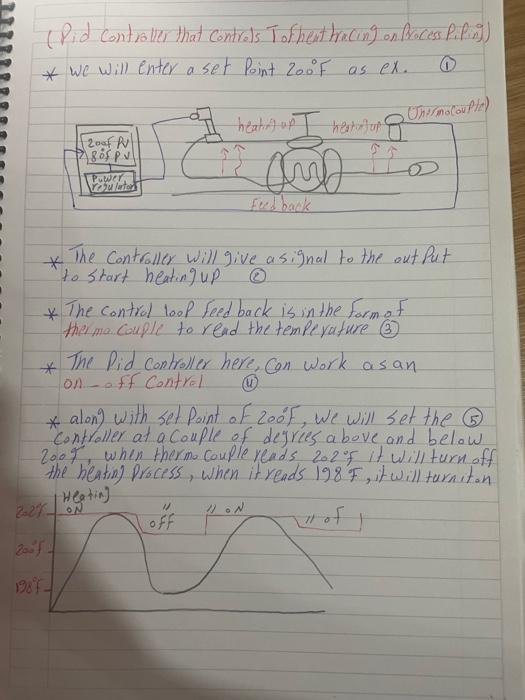 (Pid Controller that Controls Tofheat tracing on Process Piping)
* we will enter a set Point 200°F as ex. ①
(Thermocouple)
heating up heating up
200F PV
80F PV
Power
regulator
Feed back
* The Controller will give a signal to the out Put
to start heating up ②
* The Control loop feed back is in the form of
thermo couple to read the temperature ③
* The Pid Controller here, Can work as an
on - off Control ④
* along with set Point of 200°F, we will set the ⑤
Controller at a couple of degrees above and below
200F, when thermo couple reads 202°F it will turn off
the heating Process, when it reads 198F, it will turn it on
Heating
ON " off " ON " of
202°F
200°F
198°F